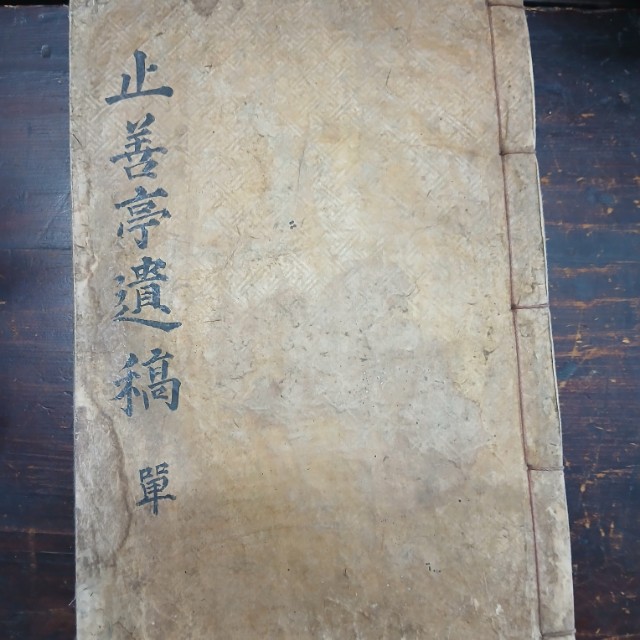 止善亭遺稿 單